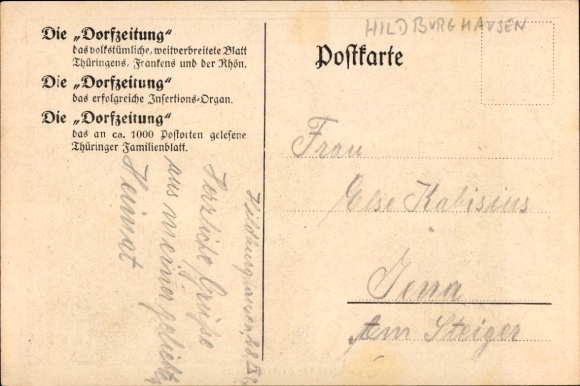 Die „Dorfzeitung“
das volkstümliche, weitverbreitete Blatt
Thüringens, Frankens und der Rhön.
Die „Dorfzeitung“
das erfolgreiche Insertions-Organ.
Die „Dorfzeitung“
das an ca. 1000 Postorten gelesene
Thüringer Familienblatt.
Herzliche Grüße
aus meiner
Heimat
HILDBURGHAUSEN
Postkarte
Frau
Else Kabisius
Jena
Am Steiger